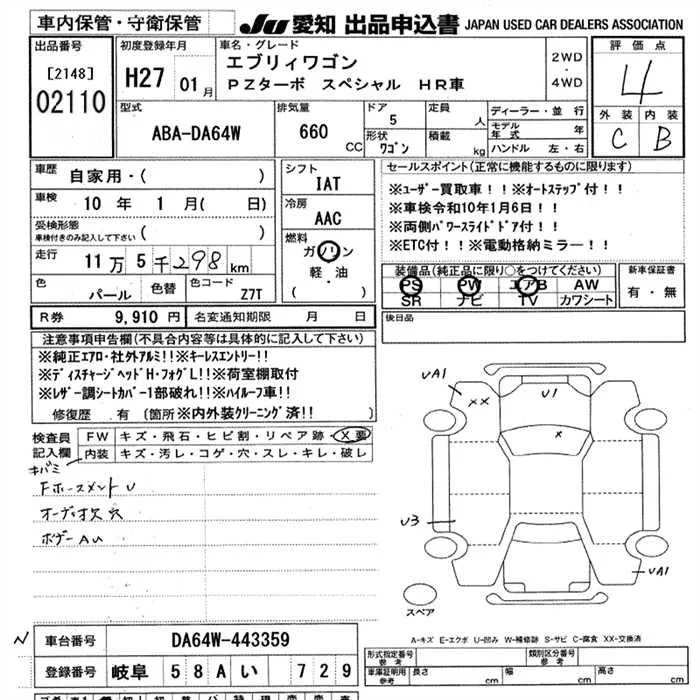 車内保管・守衛保管
JU愛知 出品申込書 JAPAN USED CAR DEALERS ASSOCIATION
出品番号
[2148]
02110
初度登録年月
H27 01月
車名・グレード
エブリィワゴン
PZターボ スペシャル HR車
2WD
・
4WD
評価点
4
外装 内装
C B
型式
ABA-DA64W
排気量
660 CC
ドア
5
形状
ワゴン
定員
人
積載
kg
ディーラー・並行
モデル年式 年
ハンドル 左・右
車歴 自家用・( )
車検 10年 1月( 日)
受検形態
車検付きのみ記入して下さい ( )
走行 11万5千298km
色 パール
色替
色コード Z7T
シフト
IAT
冷房
AAC
燃料
ガソリン
軽・油
( )
セールスポイント(正常に機能するものに限ります)
※ユーザー買取車!!※オートステップ付!!
※車検令和10年1月6日!!
※両側パワースライドドア付!!
※ETC付!!※電動格納ミラー!!
装備品(純正品に限り○をつけてください)
PS PW エアB AW
SR ナビ TV カワシート
新車保証書
有・無
R券 9,910円
名変通知期限 月 日
後日品
注意事項申告欄(不具合内容等は具体的に記入して下さい)
※純正エアロ・社外アルミ!!※キーレスエントリー!!
※ディスチャージヘッドH・フォグL!!※荷室棚取付
※レザー調シートカバー1部破れ!!※ハイルーフ車!!
修復歴 有(箇所※内外装クリーニング済!!)
検査員記入欄
FW キズ・飛石・ヒビ割・リペア跡・X要
内装 キズ・汚レ・コゲ・穴・スレ・キレ・破レ
キバミ
Fホースメント U
オーディオ欠 穴
ボデー AU
UA1
XX
U1
X
U3
UA1
スペア
A-キズ E-エクボ U-凹み W-補修跡 S-サビ C-腐食 XX-交換済
N
車台番号 DA64W-443359
登録番号 岐阜 58A い 729
形式指定番号
参考
類別区分番号
参考
車庫証明用
参考
長さ cm 幅 cm 高さ cm